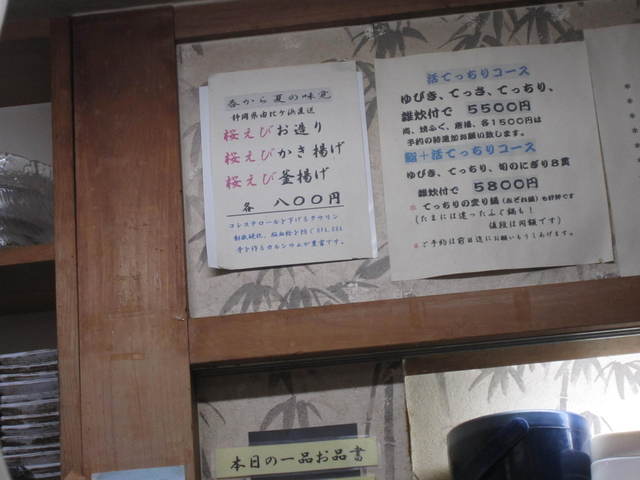 春から夏の味覚
静岡県由比ヶ浜直送
桜えびお造り
桜えびかき揚げ
桜えび釜揚げ
各 八〇〇円
コレステロールを下げるタウリン
動脈硬化、脳血栓を防ぐEPA、DHA
骨を作るカルシウムが豊富です。
活てっちりコース
ゆびき、てっさ、てっちり、
雑炊付で 5500円
尚、焼ふぐ、唐揚、各1500円は
予約の時追加お願い致します。
鮨+活てっちりコース
ゆびき、てっちり、旬のにぎり8貫
雑炊付で 5800円
※ てっちりの変り鍋(みぞれ鍋)も好評です
(たまには違ったふぐ鍋も!
値段は同額です)
※ご予約は前日迄にお願いもうしあげます。
本日の一品お品書